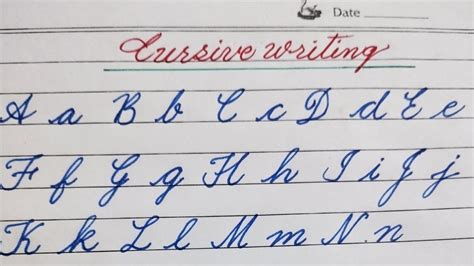 Date
Cursive writing
A a B b C c D d E e
F f G g H h I i J j
K k L l M m N n